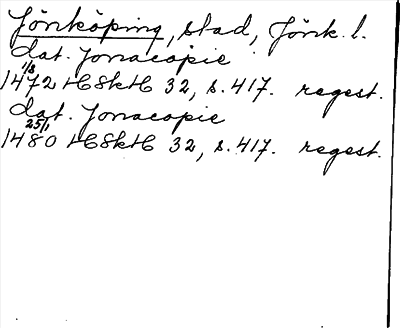 Jönköping, stad, Jönk. l.
dat. Jonacopie
1/3
1472 HSkH 32, s. 417. regest.
dat. Jonacopie
25/1
1480 HSkH 32, s. 417. regest.